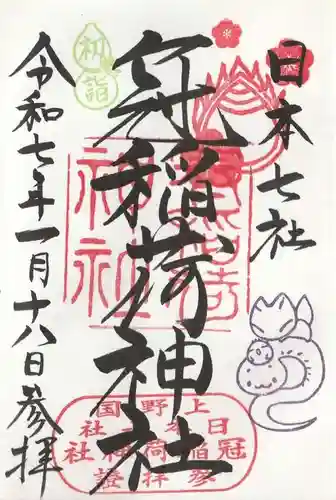 日本七社
冠稲荷神社
令和七年一月十八日参拝
初詣
上野国
日本七社
冠稲荷神社
参拝證